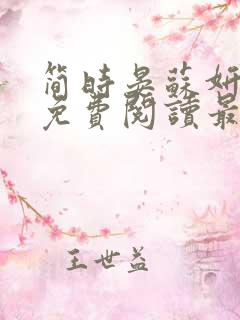 简时晏蘇妍
免費閱讀最
王世益